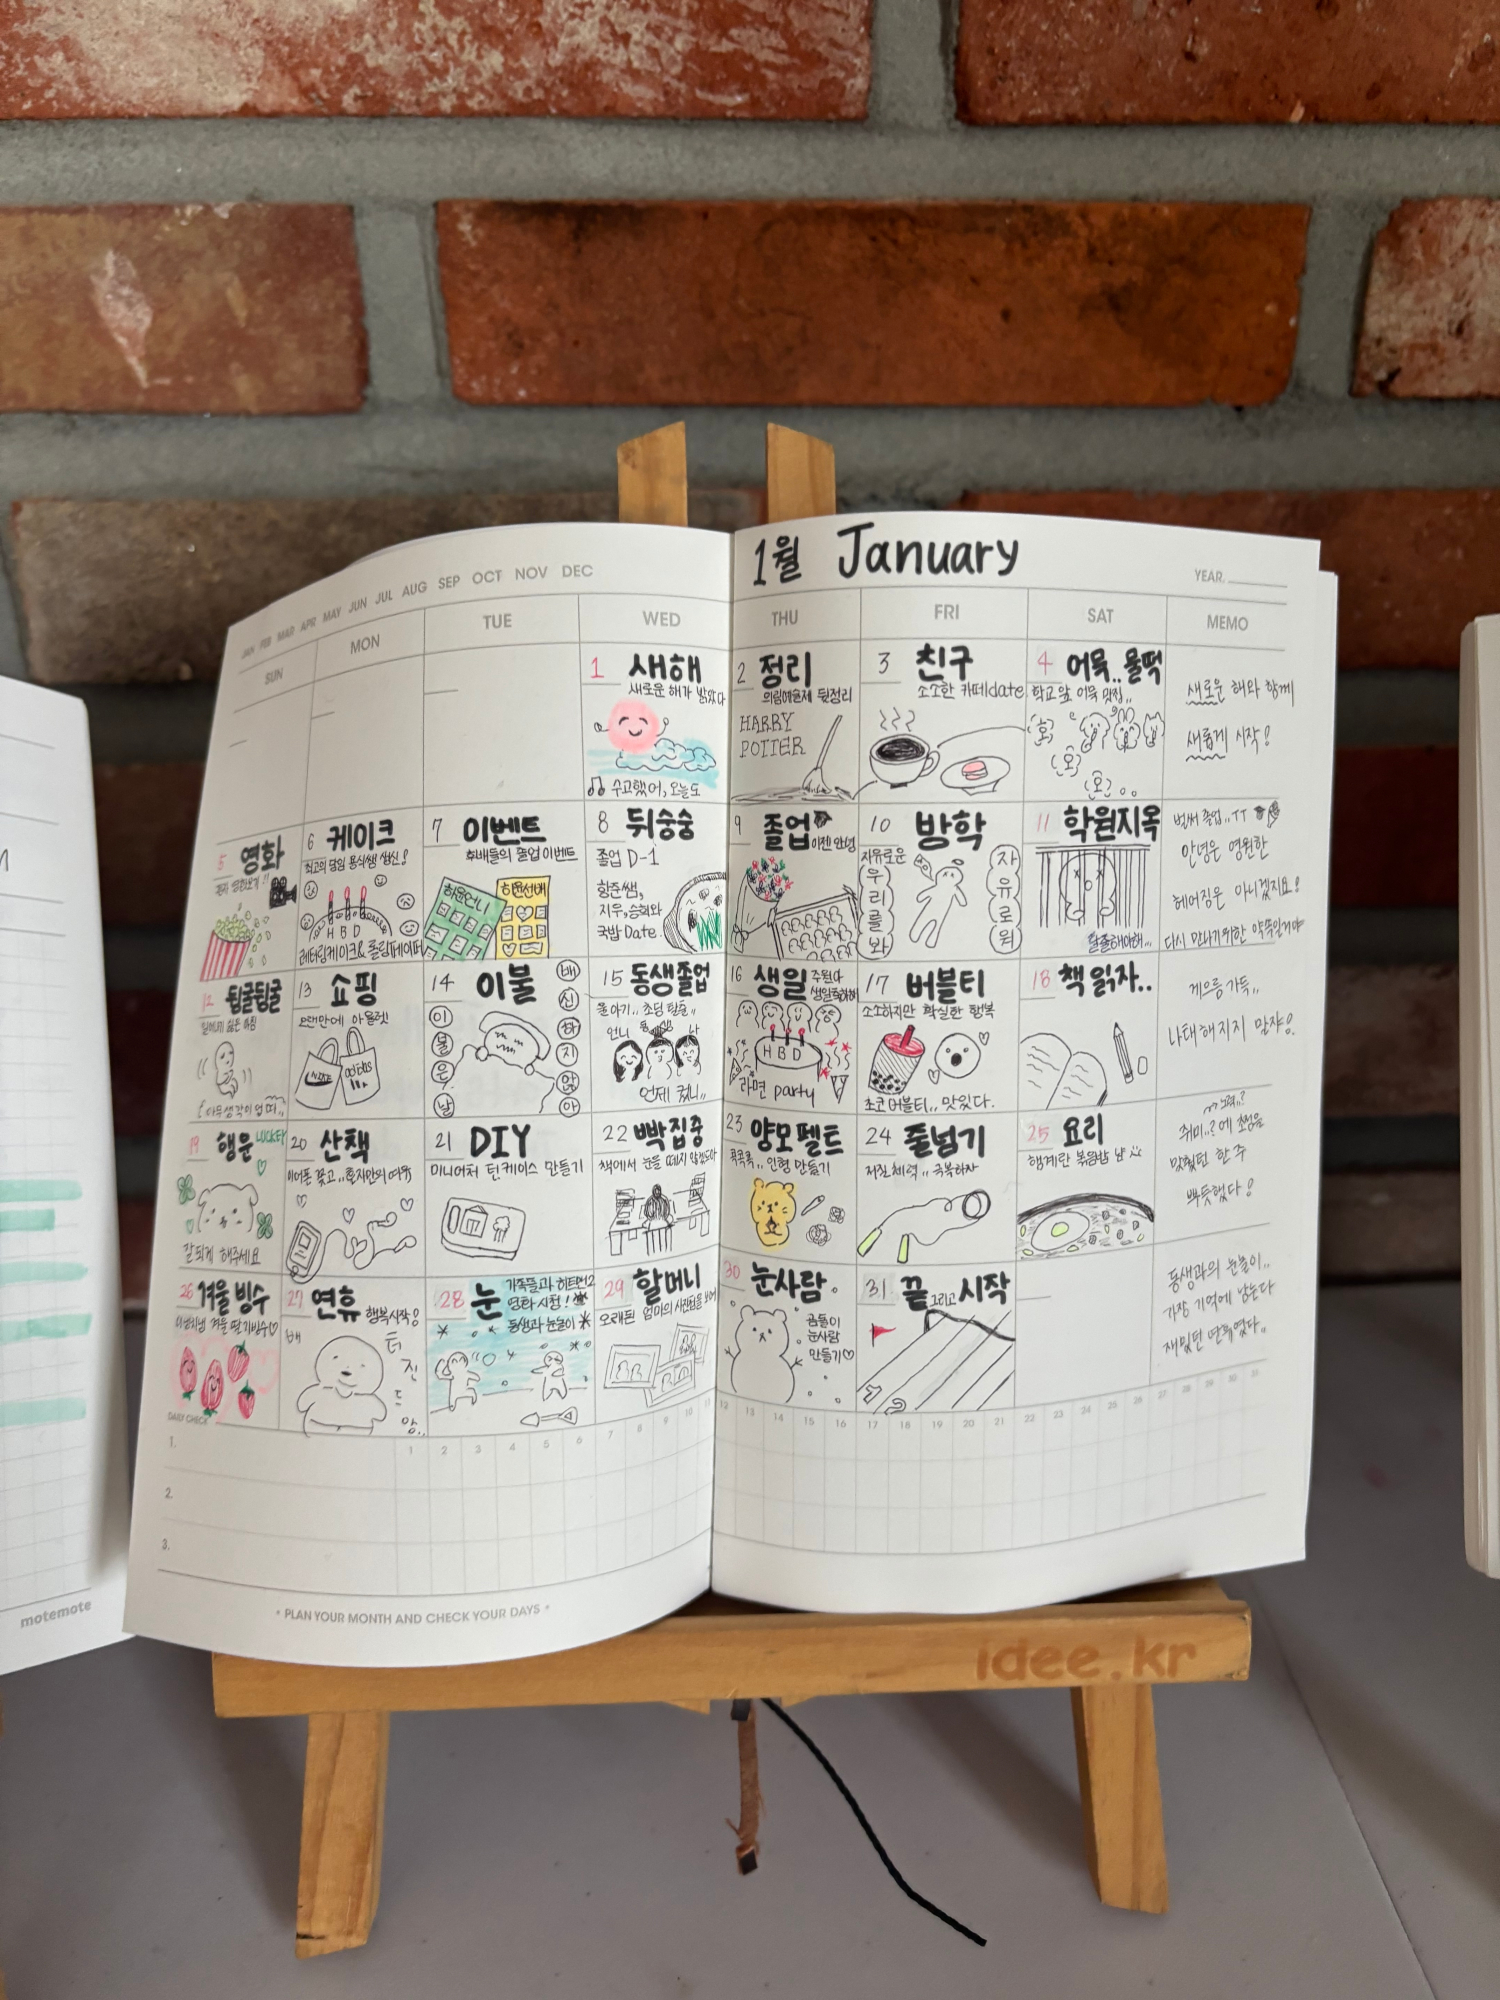 1월 January
JAN FEB MAR APR MAY JUN JUL AUG SEP OCT NOV DEC
YEAR.
SUN MON TUE WED THU FRI SAT MEMO
1 새해
새로운 해가 밝았다
수고했어, 오늘도
2 정리
의림예술제 뒷정리
HARRY
POTTER
3 친구
소소한 카페date
4 어묵..물떡
학교앞 어묵 맛집..
호
호
호
새로운 해와 함께
새롭게 시작!
5 영화
6 케이크
최고의 담임 용식쌤 생신!
HBD
레터링케이크&롤링페이퍼
7 이벤트
후배들의 졸업 이벤트
하윤언니
하윤선배
8 뒤숭숭
졸업 D-1
항준쌤,
지우,승희와
국밥 Date.
9 졸업
이젠 안녕
10 방학
자유로운
우리를 봐
자유로워
11 학원지옥
탈출해야해...
벌써 졸업..TT
안녕은 영원한
헤어짐은 아니겠지요!
다시 만나기위한 약속일거야
12 뒹굴뒹굴
일어나기 싫은 아침
아무생각이 없다..
13 쇼핑
오랜만에 아울렛
14 이불
이불은 날
배신하지 않아
15 동생졸업
똘아기.. 초딩 탈출..
언니
나
언제 컸니..
16 생일
주원아
생일축하해
HBD
라면 party
17 버블티
소소하지만 확실한 행복
초코버블티.. 맛있다.
18 책 읽자..
게으름 가득..
나태해지지 말자!
19 행운 LUCKEY
잘되게 해주세요
20 산책
이어폰 꽂고..혼자만의 여유
21 DIY
미니어처 틴케이스 만들기
22 빡집중
책에서 눈을 떼지 않겠도다
23 양모펠트
콕콕콕.. 인형 만들기
24 줄넘기
저질체력.. 극복하자
25 요리
햄계란 볶음밥 냠
취미..?에 초점을
맞췄던 한 주
뿌듯했다!
26 겨울 빙수
27 연휴
행복시작!
배
터
진
드
앙..
28 눈
가족들과 히트맨2
영화 시청!
동생과 눈놀이
29 할머니
오래된 엄마의 사진첩을 보며
30 눈사람
곰돌이
눈사람
만들기♡
31 끝 그리고 시작
동생과의 눈놀이..
가장 기억에 남는다
재밌던 연휴였다.
DAILY CHECK
1 2 3 4 5 6 7 8 9 10 11 12 13 14 15 16 17 18 19 20 21 22 23 24 25 26 27 28 29 30 31
1.
2.
3.
* PLAN YOUR MONTH AND CHECK YOUR DAYS *
motemote
idee.kr